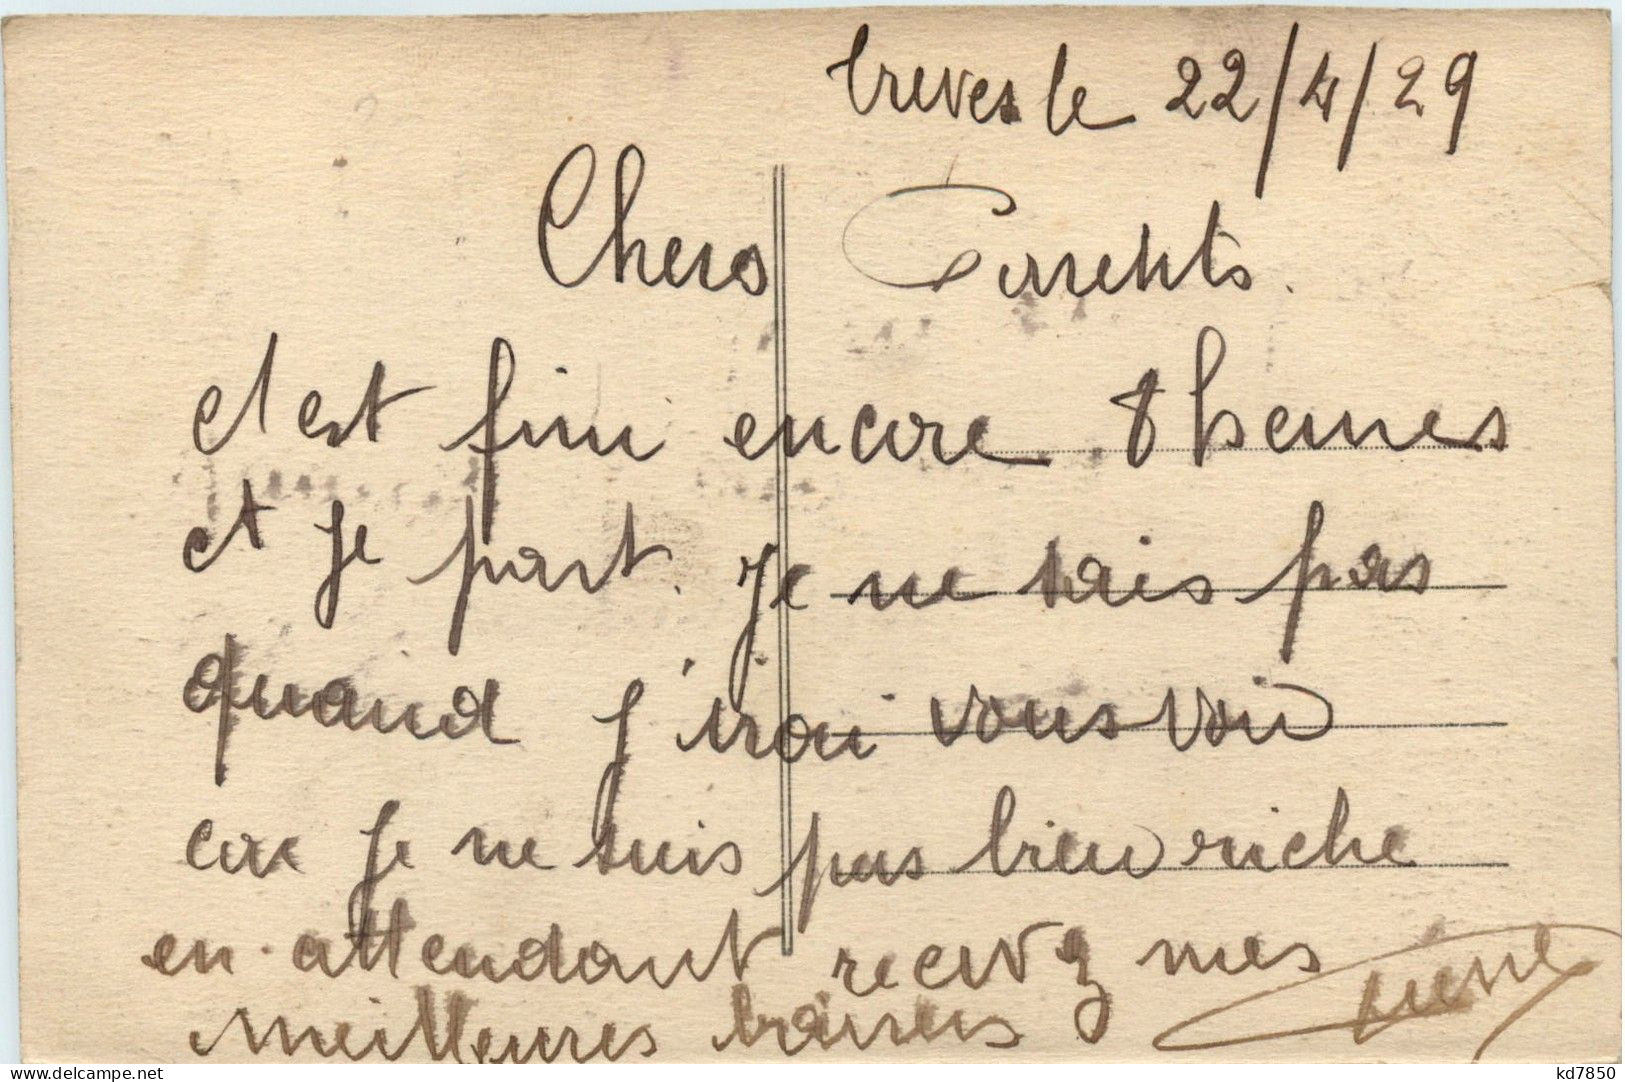 Treves le 22/4/29
Chers Parents.
c'est fini encore 8 heures
et je part. je ne sais pas
quand j'irai vous voir
car je ne suis pas bien riche
en attendant recevez mes
meilleures baisers
delcampe.net
kd7850